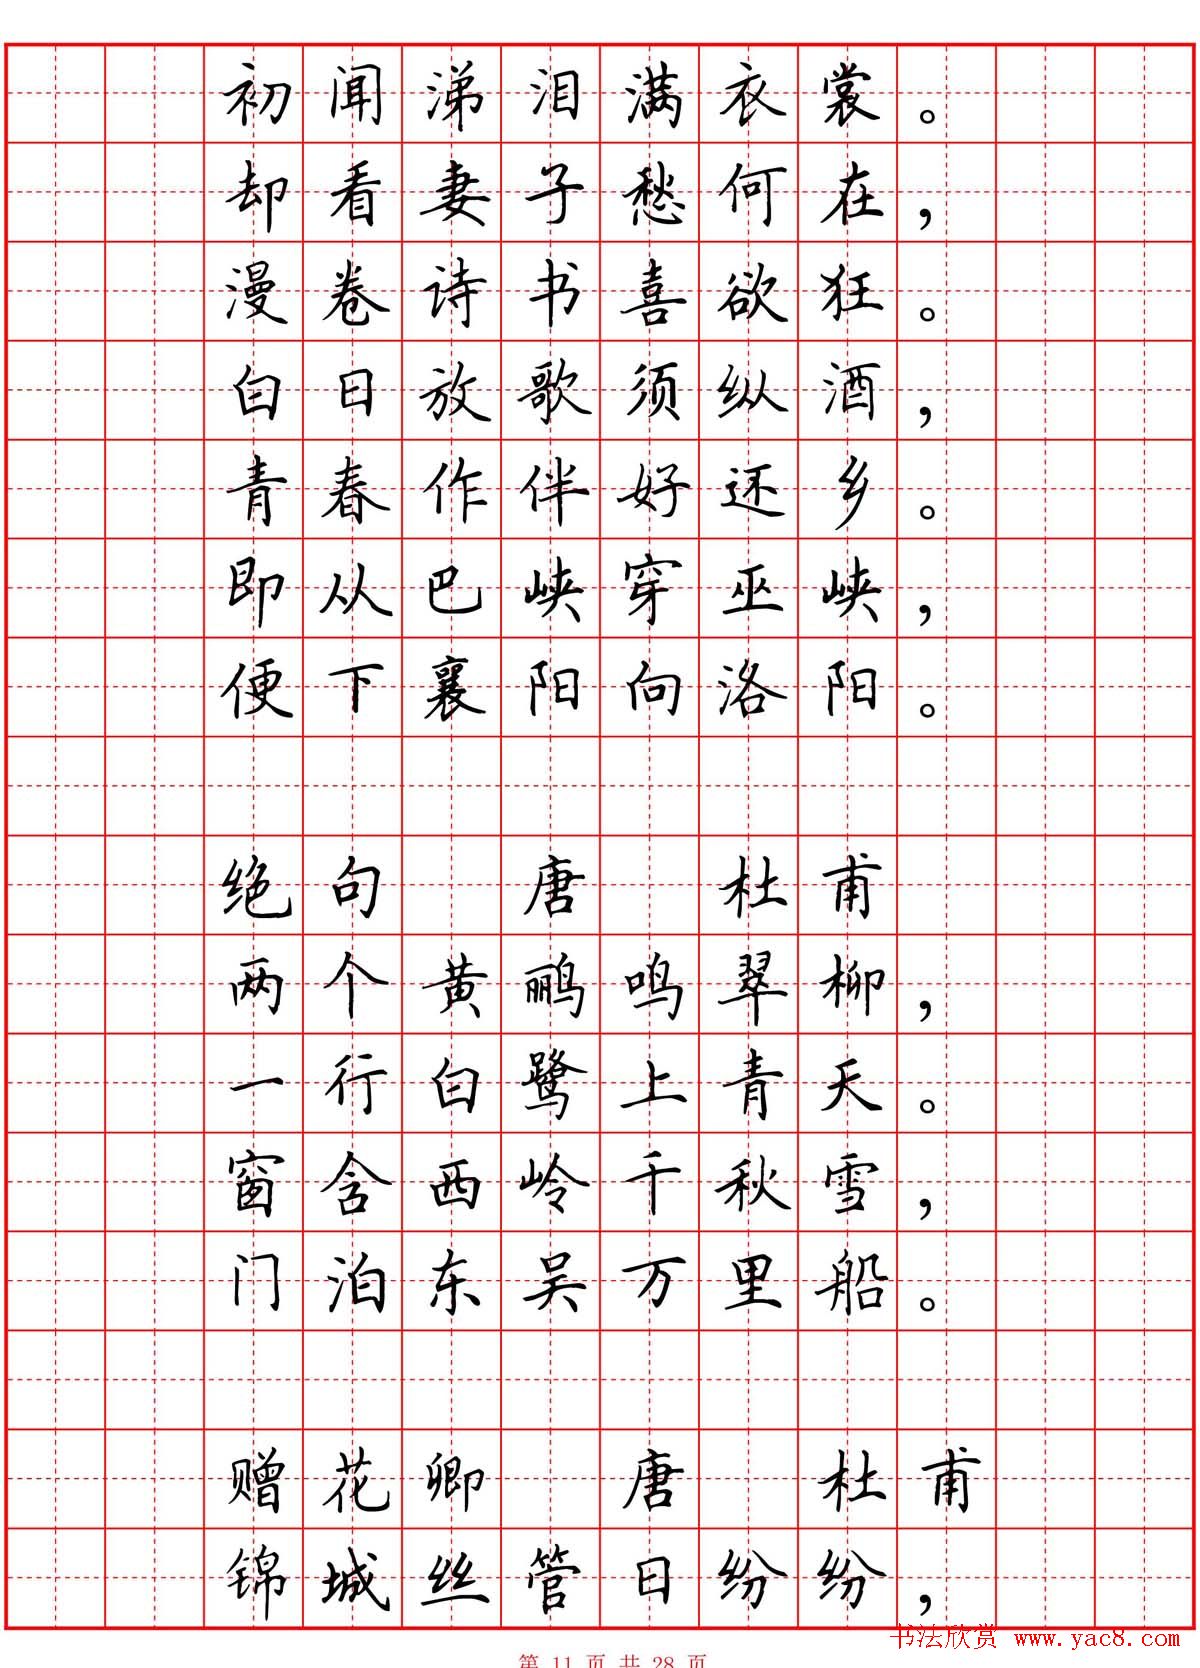 初闻涕泪满衣裳。
却看妻子愁何在，
漫卷诗书喜欲狂。
白日放歌须纵酒，
青春作伴好还乡。
即从巴峡穿巫峡，
便下襄阳向洛阳。
绝句 唐 杜甫
两个黄鹂鸣翠柳，
一行白鹭上青天。
窗含西岭千秋雪，
门泊东吴万里船。
赠花卿 唐 杜甫
锦城丝管日纷纷，
书法欣赏 www.yac8.com
第 11 页 共 28 页